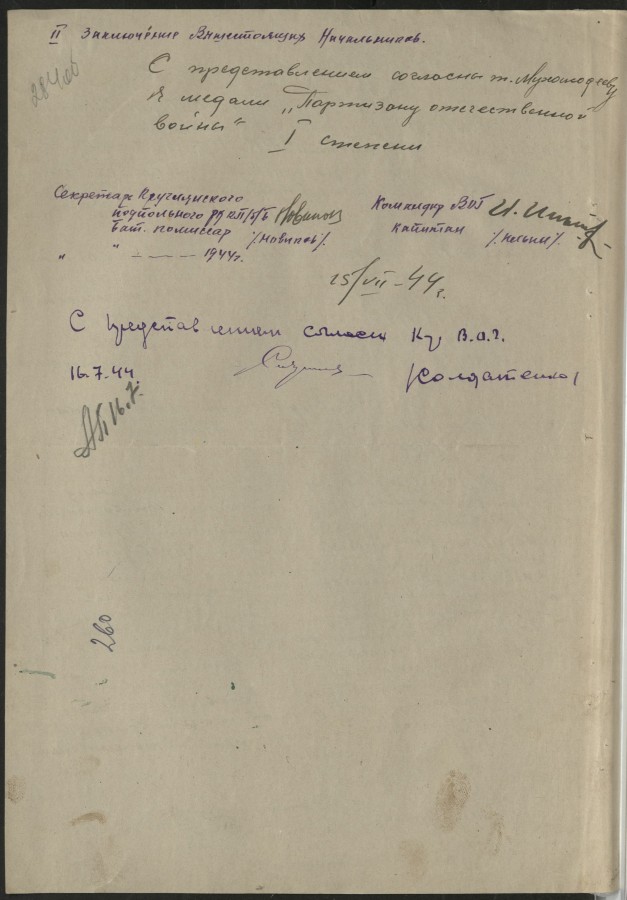 II Заключение Вышестоящих Начальников.
С представлением согласны т. Мухамодеев
к медали „Партизану отечественной
войны“ I степени
Секретарь Круглянского
подпольного РК КП/б/Б Новиков
Бат. комиссар /Новиков/.
„ “ — — — 1944г.
Командир ВОГ
капитан /Ильин/.
15/VII-44 г.
С представлением согласен К-р В.О.Г.
16.7.44 /Солдатенко/
16.7.
260